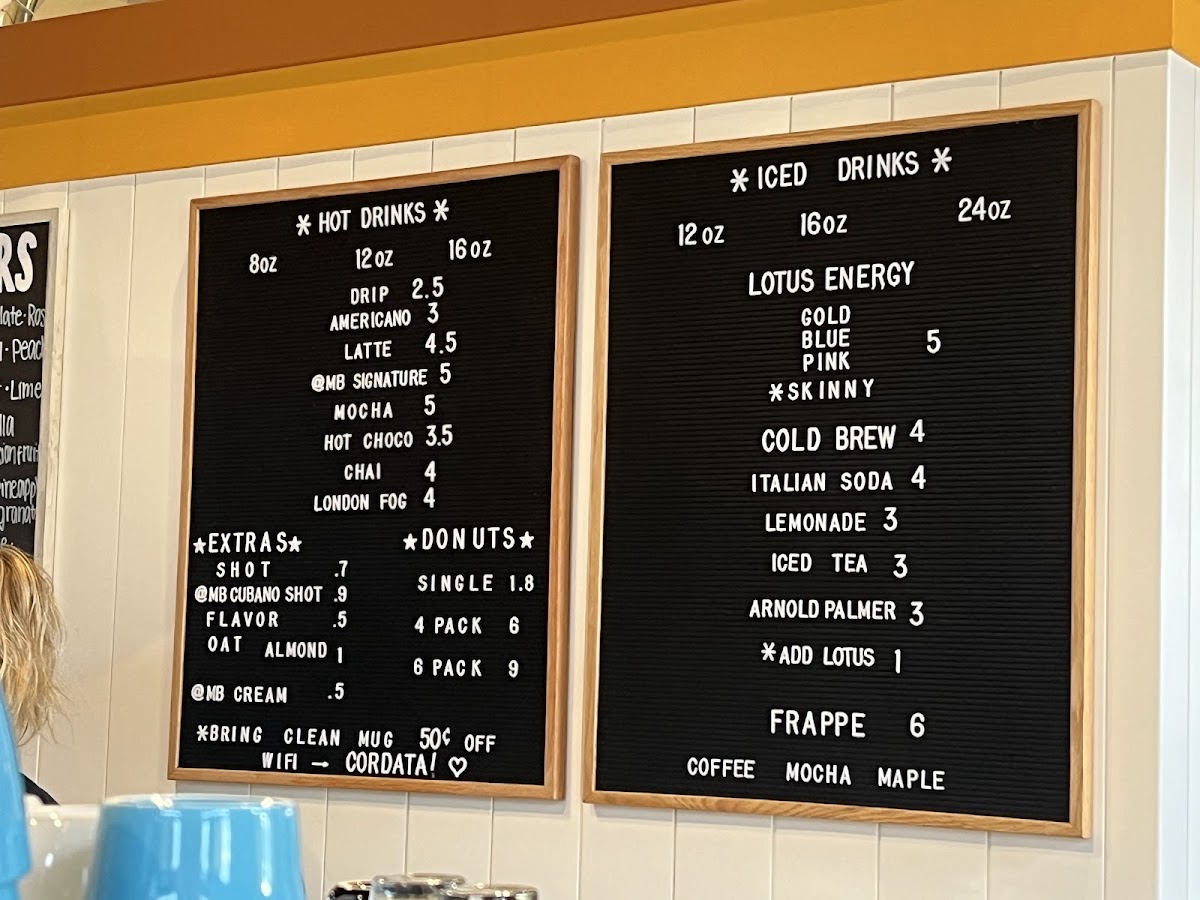 RS
Peach
Lime
* HOT DRINKS *
8oz 12oz 16oz
DRIP 2.5
AMERICANO 3
LATTE 4.5
@MB SIGNATURE 5
MOCHA 5
HOT CHOCO 3.5
CHAI 4
LONDON FOG 4
★EXTRAS★
SHOT .7
@MB CUBANO SHOT .9
FLAVOR .5
OAT ALMOND 1
@MB CREAM .5
★DONUTS★
SINGLE 1.8
4 PACK 6
6 PACK 9
*BRING CLEAN MUG 50¢ OFF
WIFI → CORDATA! ♡
* ICED DRINKS *
12oz 16oz 24oz
LOTUS ENERGY
GOLD
BLUE 5
PINK
*SKINNY
COLD BREW 4
ITALIAN SODA 4
LEMONADE 3
ICED TEA 3
ARNOLD PALMER 3
*ADD LOTUS 1
FRAPPE 6
COFFEE MOCHA MAPLE